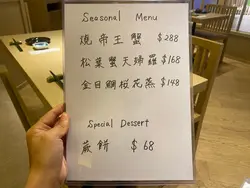 Seasonal Menu
燒帝王蟹 $288
松葉蟹天婦羅 $168
金目鯛桜花蒸 $148
Special Dessert
蕨餅 $68